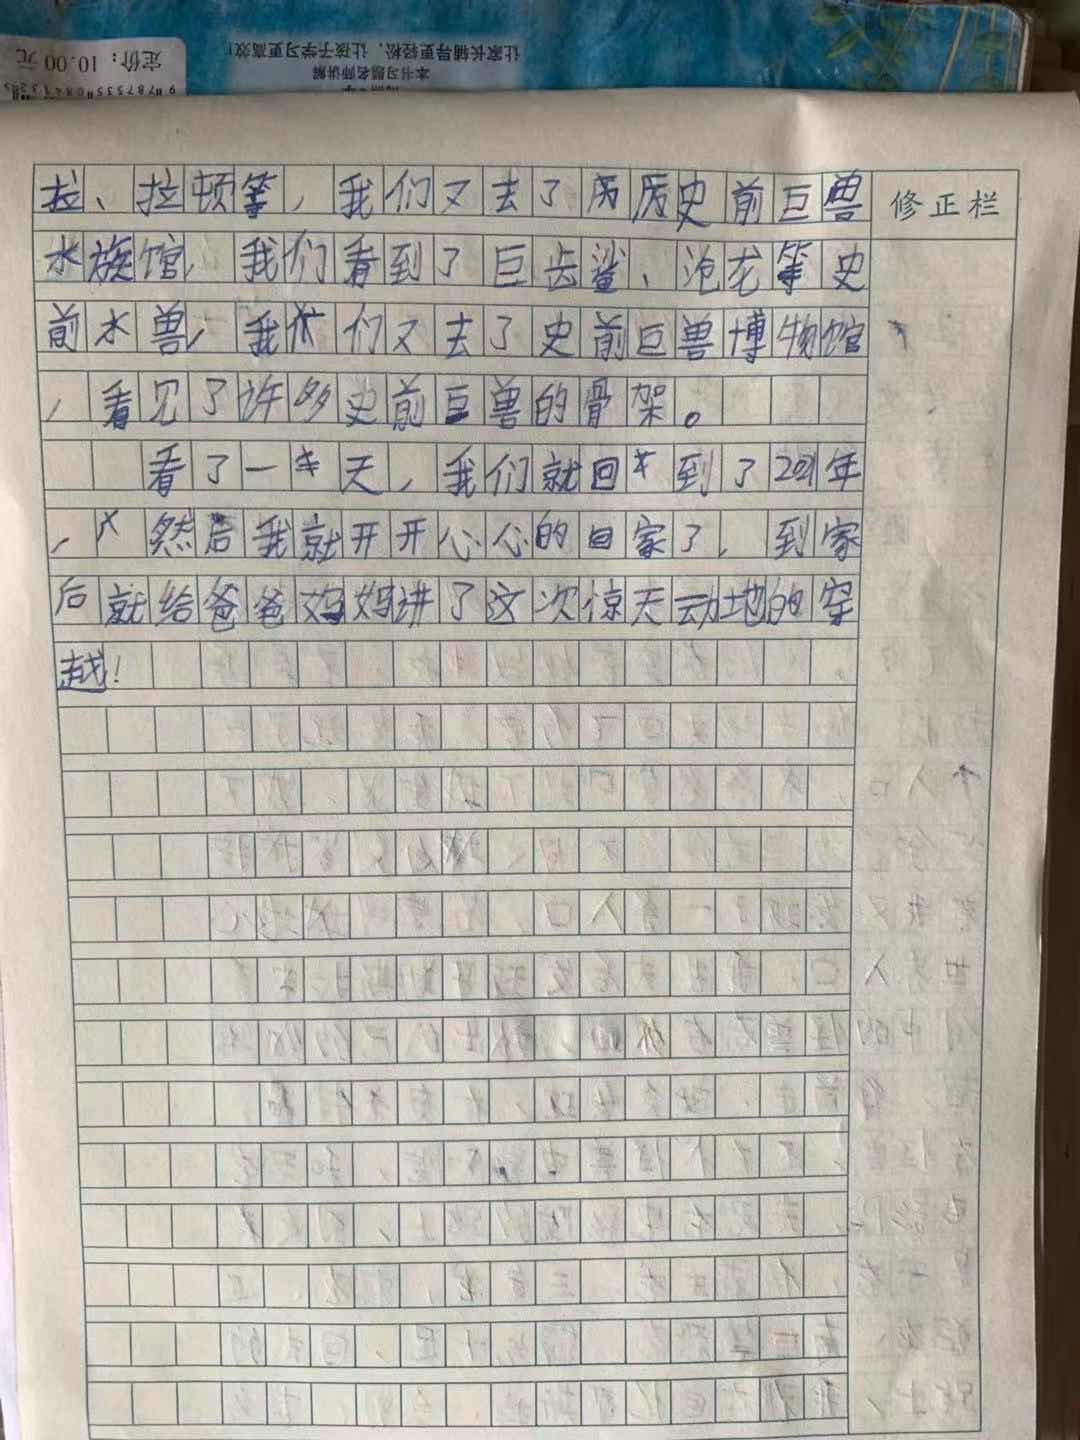 让家长辅导更轻松，让孩子学习更高效！
本书习题名师讲解
定价：10.00 元
拉、拉顿等，我们又去了历历史前巨兽
修正栏
水族馆，我们看到了巨齿鲨、沧龙等史
前水兽，我们又去了史前巨兽博物馆
，看见了许多史前巨兽的骨架。
看了一天，我们就回到了2021年
，然后我就开开心心的回家了，到家
后就给爸爸妈妈讲了这次惊天动地的穿
越！